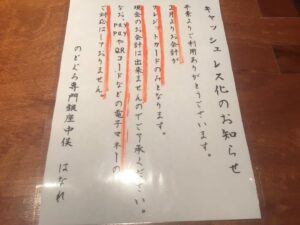 キャッシュレス化のお知らせ
平素よりご利用ありがとうございます。
正月よりお会計が
クレジットカードのみとなります。
現金のお会計は出来ませんのでご了承ください。
なお、PayPayやQRコードなどの電子マネーの
ご対応はしておりません。
のどぐろ専門銀座中俣 はなれ